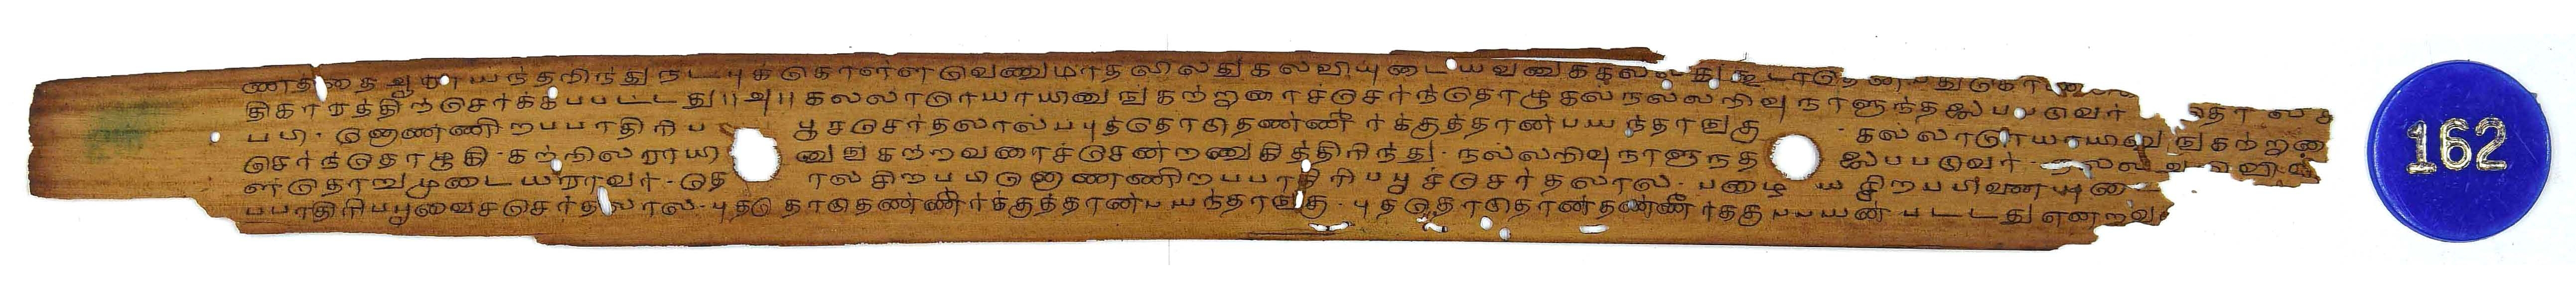 ணத்தை ஆராயந்தறிந்து நடபுக்கொள்ளவெணுமாதலிலது கல்வியுடையவனுக்கல்லது கூடாதென
திகாரத்தின்சொக்கப்பட்டது ॥ அ ॥ கல்லாரெயாயினுங்கற்றாரைச்செர்ந்தொழுகல்நல்லறிவு நாளுந்தலைப்படுவர் தொல்சி
பபி · னெண்ணிறப்பாதிரிப பூச்செர்தலால்ப்புத்தொடுதண்ணீர்க்குத்தான்பயந்தாங்கு கல்லாரெயாயினுங்கற்றாரை
செர்ந்தொழுகி · கற்றிலராயி னுங்கற்றவரைச்சென்றணுகித்திரிந்து · நல்லறிவு நாளுந்த லைப்படுவர் ·
ள்தொறுமுடையராவர் · தெ ால்சிறப்பினெண்ணிறப்பாதிரிப்பூச்செர்தலால் · பழைய சிறப்பிவண
ப்பாதிரிப்பூவைச்செர்தலால் · புத்தொடுதண்ணீர்க்குத்தான்பயந்தாங்கு · புத்தொடுதான்தண்ணீர்த்குப்பயன்பட்டது என்றவ
162